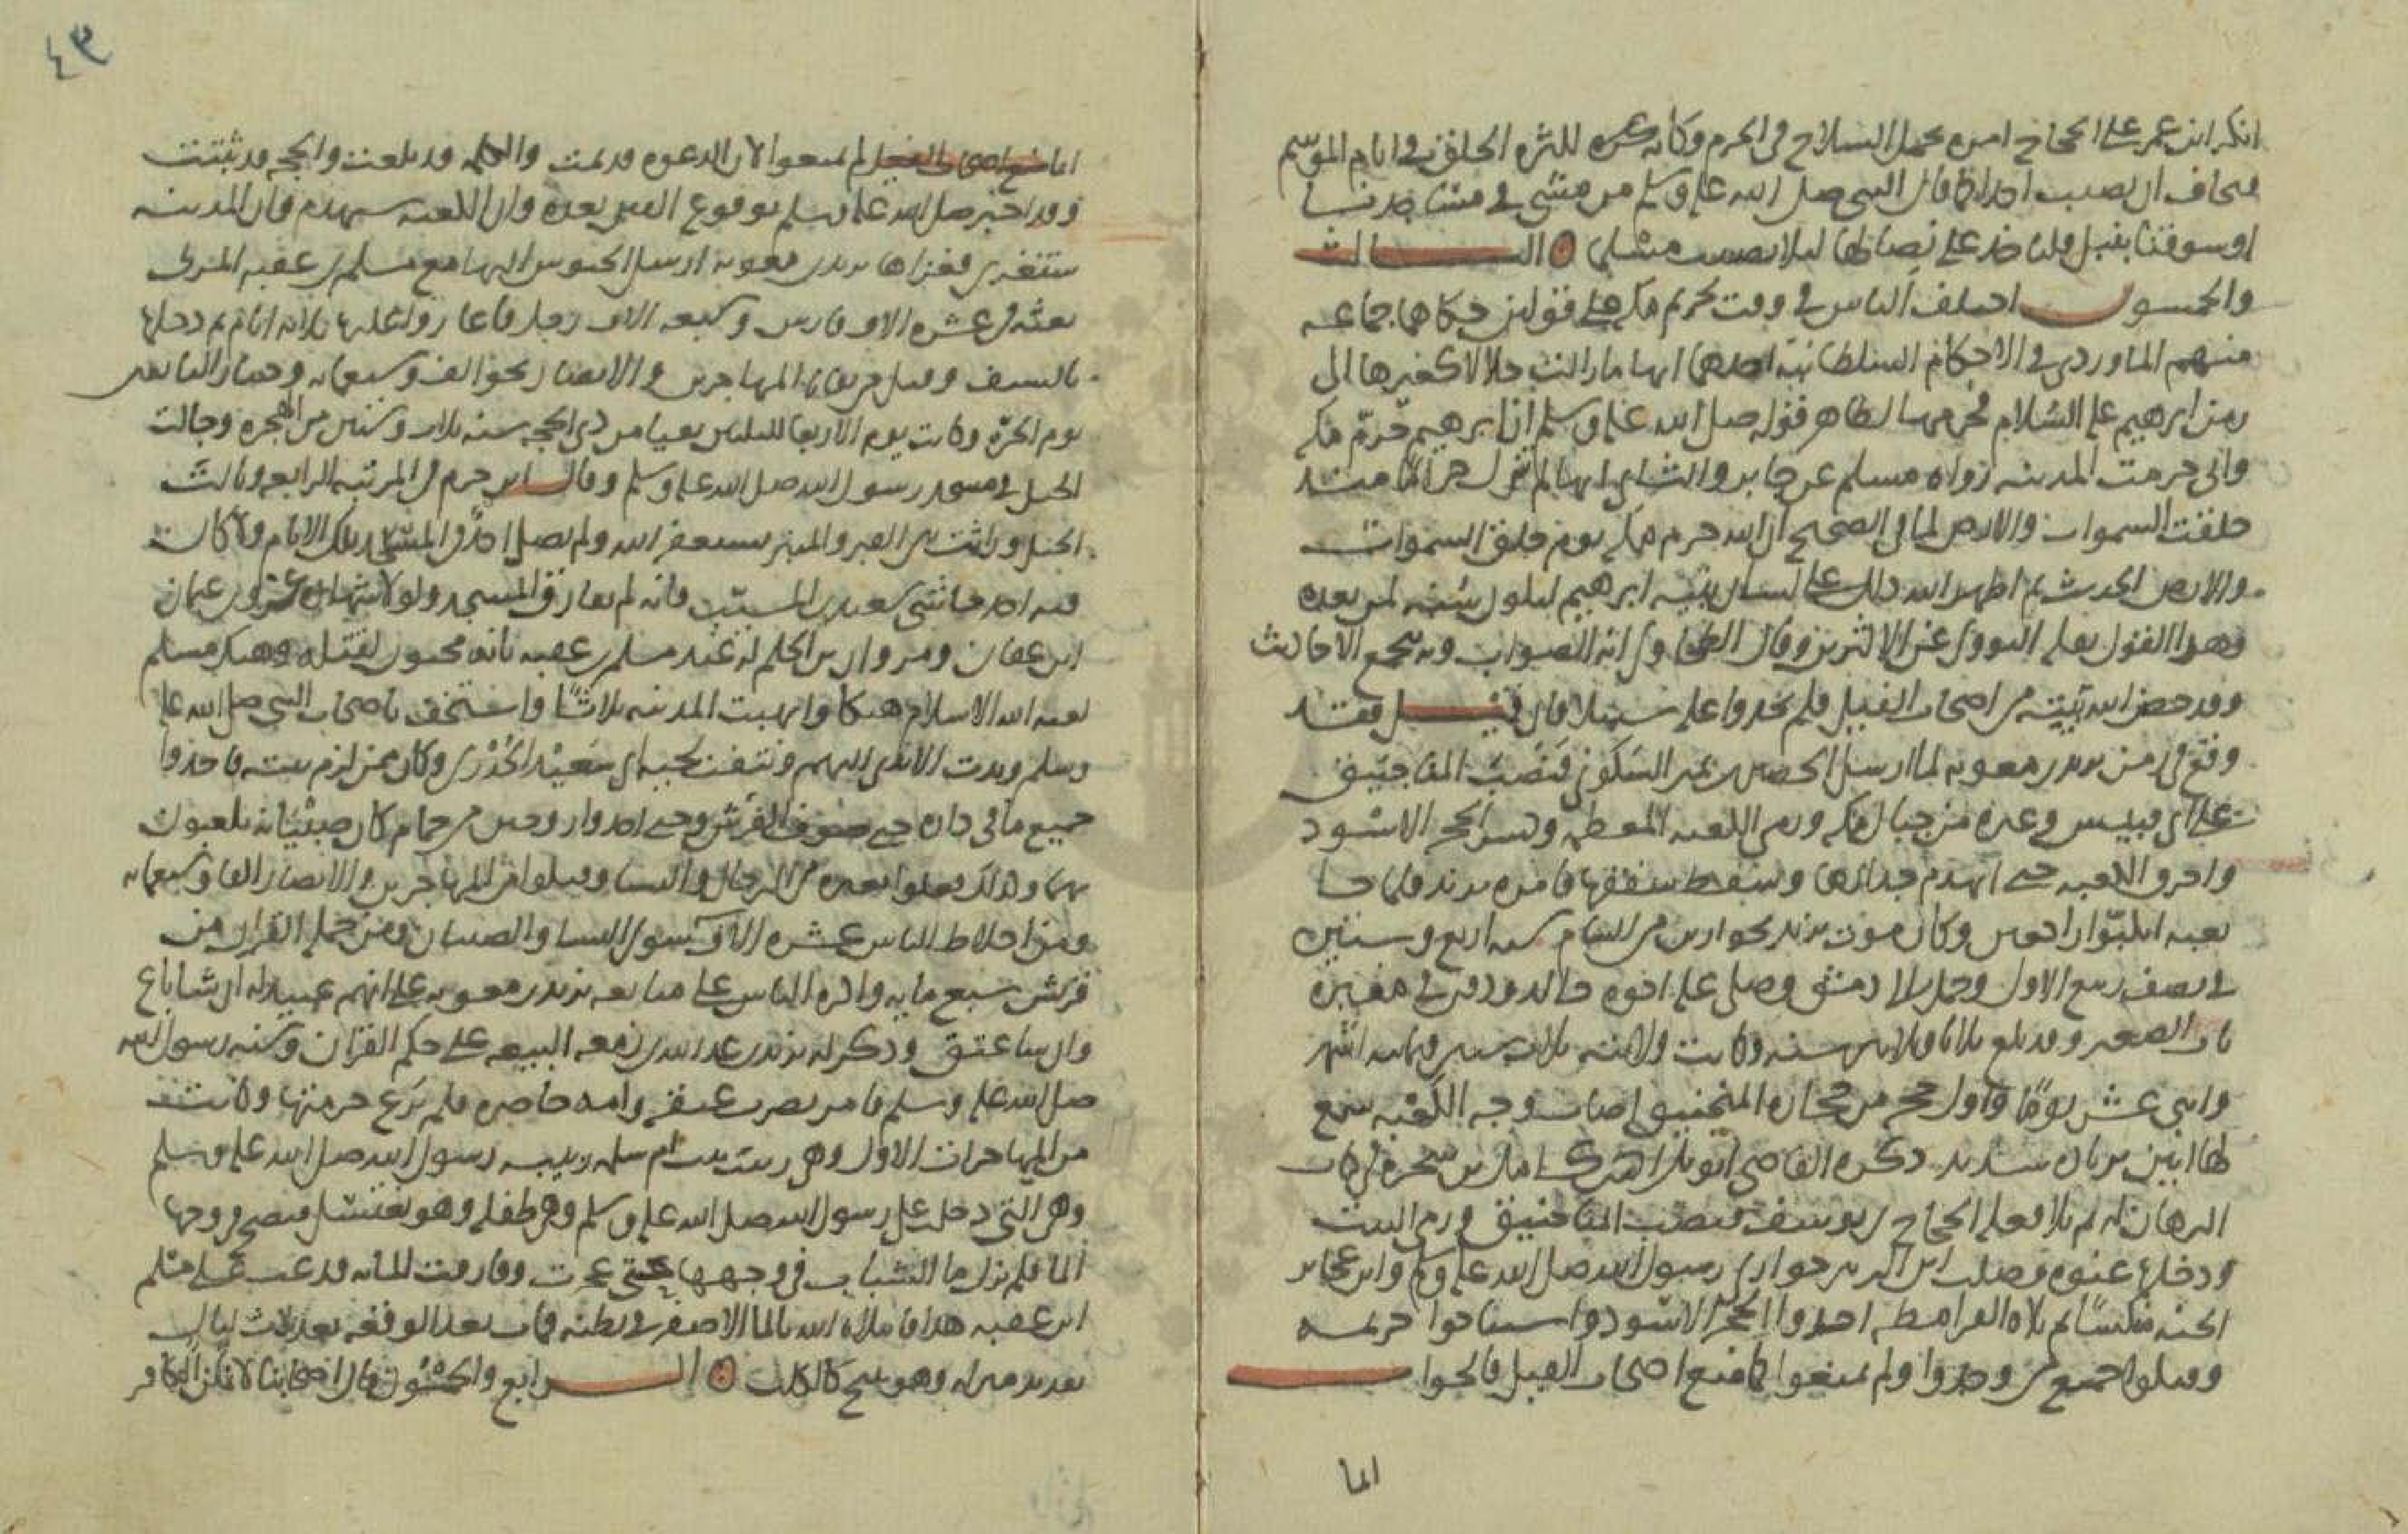 انكر ابن عمر على الحجاج امره بحمل السلاح في الحرم وكانه كره لكثره الخلق في ايام الموسم
فيخاف ان يصيب احدا كما قال النبي صلى الله عليه وسلم من مشى في مشاجدنا
او سوقنا بنبل فلياخذ على نصالها ليلا يصيب مسلما ۞ الـــثالث
والخمسون اختلف الناس في وقت تحريم مكه على قولين حكاهما جماعه
منهم الماوردي في الاحكام السلطانيه احدهما انها مازالت حلالا كغيرها الى
زمن ابرهيم عليه السلام فحرمها لظاهر قوله صلى الله عليه وسلم ان ابرهيم حرّم مكه
واني حرمت المدينه رواه مسلم عن جابر والثاني انها لم تزل حراما منذ
خلقت السموات والارض لما في الصحيح ان الله حرم مكه يوم خلق السموات
والارض الحديث ثم اظهر الله ذلك على لسان نبيه ابرهيم ليكون سنه لمن بعده
وهذا القول نقله النووي عن الاكثرين وقال الطحاوي انه الصواب وبه تجمع الاحاديث
وقد حفظ الله بيته من اصحاب الفيل فلم يجدوا عليه سبيلا فان قيــل فقد
وقع في زمن يزيد بن معويه لما ارسل الحصين بن نمير السكوني فنصب المناجنيق
على ابي قبيس وغيره من جبال مكه ورمى الكعبه المعظمه وكسر الحجر الاسود
واحرق الكعبه حتى انهدم جدارها وسقط سقفها فامره يزيد فلما جا
نعيه ابلبّوا راجعين وكان موت يزيد بحوارين من الشام سنه اربع وستين
في نصف ربيع الاول وحمل الى دمشق وصلى عليه اخوه خالد ودفن في مقبره
باب الصغير وقد بلغ ثلاثا وثلاثين سنه وكانت ولايته ثلاث سنين وثمانيه اشهر
واثني عشر يوما واول حجر من حجاره المنجنيق اصاب وجه الكعبه سمع
لها انين بزياده شديد ذكره القاضي ابو بكر احمد بن كامل بن شجره في كتاب
البرهان له ثم تلاه فعل الحجاج بن يوسف فنصب المناجنيق ورمى البيت
ودخلها عنوه فصلب ابن الزبير حواري رسول الله صلى الله عليه وسلم وابن عمه بباب
الجنه منكسا ثم تلاه القرامطه اخذوا الحجر الاسود واستباحوا حريمه
وقتلوا جميع من وجدوا ولم يمنعوا كما منع اصحاب الفيل فالجواب
اما
انما منع اصحاب الفيل ولم يمنعوا لان الدعوه قد تمت والكلمه قد بلغت والحجه قد ثبتت
وقد اخبر صلى الله عليه وسلم بوقوع الفتن بعده وان الكعبه ستهدم وان المدينه
ستغزى فغزاها يزيد بن معويه ارسل الجيوش اليها مع مسلم بن عقبه المري
بعثه في عشره الاف فارس وسبعه الاف رجل فاغاروا عليها ثلاثه ايام ثم دخلها
بالسيف وقتل من بقايا المهاجرين والانصار نحو الف وسبعمايه وخيار التابعين
يوم الحرّه وكانت يوم الاربعا لليلتين بقيا من ذي الحجه سنه ثلاث وستين من الهجره وجالت
الخيل في مسجد رسول الله صلى الله عليه وسلم وقال ابن حزم في المرتبه الرابعه وبالت
الخيل وراثت بين القبر والمنبر نستغفر الله ولم يصل احد في المسجد تلك الايام ولا كان
فيه احد حاشى سعيد بن المسيب فانه لم يفارق المسجد ولولا شهاده عمرو بن عثمان
ابن عفان ومروان بن الحكم له عند مسلم بن عقبه بانه مجنون لقتله وهتك مسلم
لعنه الله الاسلام هتكا وانهبت المدينه ثلاثا واستخف باصحاب النبي صلى الله عليه
وسلم ومدت الايدي اليهم ونتفت لحيه ابي سعيد الخدري وكان ممن لزم بيته فاخذوا
جميع ما في داره حتى صوف الفرش وحتى اخذوا زوجين من حمام كان صبيانه يلعبون
بهما وكذلك فعلوا بغيره من الرجال والنسا وقتلوا من المهاجرين والانصار الفا وسبعمايه
ومن اخلاط الناس عشره الاف سوى النسا والصبيان ومن حمله القران من
قريش سبع مايه واكره الناس على مبايعه يزيد بن معويه على انهم عبيد له ان شا باع
وان شا عتق وذكر له يزيد بن عبد الله بن زمعه البيعه على حكم القران وسنه رسول الله
صلى الله عليه وسلم فامر بضرب عنقه وامه حاضره فلم يرع حرمتها وكانت
من المهاجرات الاول وهي زينب بنت ام سلمه ربيبه رسول الله صلى الله عليه وسلم
وهي التي دخلت على رسول الله صلى الله عليه وسلم وهي طفله وهو يغتسل فنضح في وجهها
الما فلم يزل ما الشباب في وجهها حتى عجزت وقاربت المائه فدعت على مسلم
ابن عقبه هذا فاملاه الله بالما الاصفر في بطنه فمات بعد الوقعه بعد ثلاث ليال
بقديد منزله وهو ينبح كالكلب ۞ الــرابع والخمسون قال اصحابنا لا يمكن الكافر